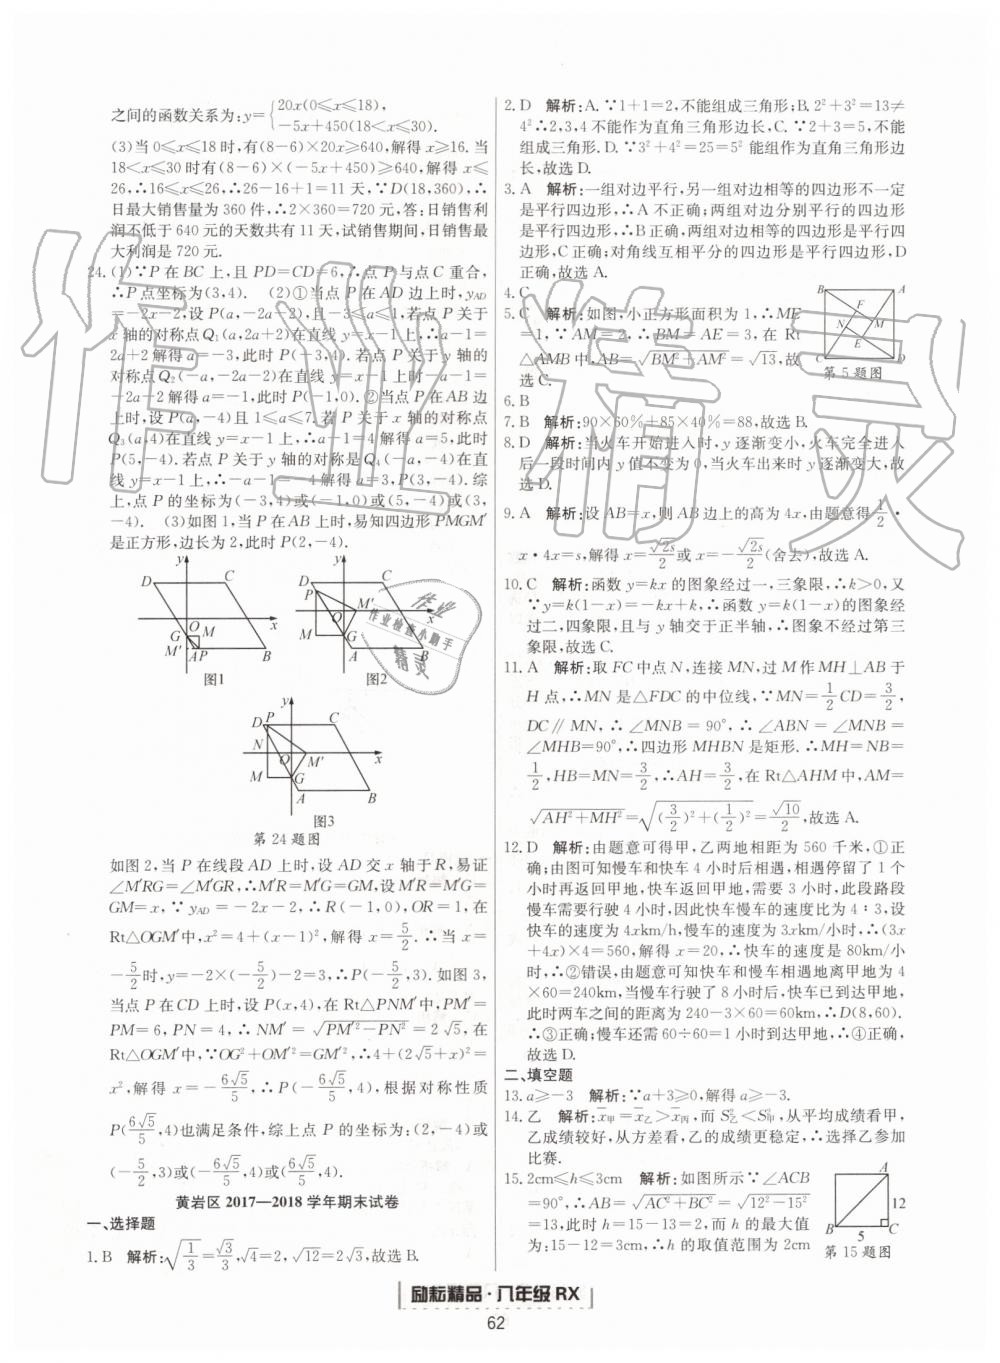 之间的函数关系为:y={20x(0≤x≤18),
−5x+450(18<x≤30).
(3)当0≤x≤18时,有(8−6)×20x≥640,解得x≥16.当
18<x≤30时有(8−6)×(−5x+450)≥640,解得x≤
26,∴16≤x≤26,∴26−16+1=11天,∵D(18,360),∴
日最大销售量为360件,∴2×360=720元,答:日销售利
润不低于640元的天数共有11天,试销售期间,日销售最
大利润是720元.
24.(1)∵P在BC上,且PD=CD=6,∴点P与点C重合,
∴P点坐标为(3,4). (2)①当点P在AD边上时,yAD
=−2x−2,设P(a,−2a−2),且−3≤a≤1,若点P关于
x轴的对称点Q₁(a,2a+2)在直线y=x−1上,∴a−1=
2a+2解得a=−3,此时P(−3,4).若点P关于y轴的
对称点Q₂(−a,−2a−2)在直线y=x−1上时,−a−1=
−2a−2解得a=−1,此时P(−1,0).②当点P在AB边
上时,设P(a,−4)且1≤a≤7.若P关于x轴的对称点
Q₃(a,4)在直线y=x−1上,∴a−1=4解得a=5,此时
P(5,−4).若点P关于y轴的对称是Q₄(−a,−4)在直
线y=x−1上,∴−a−1=−4解得a=3,P(3,−4).综
上,点P的坐标为(−3,4)或(−1,0)或(5,−4)或(3,
−4). (3)如图1,当P在AB上时,易知四边形PMGM′
是正方形,边长为2,此时P(2,−4).
y D C O x G M M′ A P B 图1
y D C P M′ O x M G A B 图2
y D P C N O M′ x M G A B 图3
第24题图
如图2,当P在线段AD上时,设AD交x轴于R,易证
∠M′RG=∠M′GR,∴M′R=M′G=GM,设M′R=M′G=
GM=x,∵yAD=−2x−2,∴R(−1,0),OR=1,在
Rt△OGM′中,x²=4+(x−1)²,解得x=5/2.∴当x=
−5/2时,y=−2×(−5/2)−2=3,∴P(−5/2,3).如图3,
当点P在CD上时,设P(x,4),在Rt△PNM′中,PM′=
PM=6,PN=4,∴NM′=√(PM′²−PN²)=2√5,在
Rt△OGM′中,∵OG²+OM′²=GM′²,∴4+(2√5+x)²=
x²,解得x=−6√5/5,∴P(−6√5/5,4),根据对称性质
P(6√5/5,4)也满足条件,综上点P的坐标为:(2,−4)或
(−5/2,3)或(−6√5/5,4)或(6√5/5,4).
黄岩区2017—2018学年期末试卷
一、选择题
1.B 解析:√(1/3)=√3/3,√4=2,√12=2√3,故选B.
2.D 解析:A.∵1+1=2,不能组成三角形;B.2²+3²=13≠
4²∴2,3,4不能作为直角三角形边长,C.∵2+3=5,不能
组成三角形.D.∵3²+4²=25=5²能组作为直角三角形边
长,故选D.
3.A 解析:一组对边平行,另一组对边相等的四边形不一定
是平行四边形,∴A不正确;两组对边分别平行的四边形
是平行四边形,B正确;两组对边相等的四边形是平行四
边形,C正确;对角线互相平分的四边形是平行四边形,D
正确,故选A.
4.C
5.C 解析:如图,小正方形面积为1,∴ME
=1,∵AM=2,∴BM=AE=3,在Rt
△AMB中,AB=√(BM²+AM²)=√13,故
选C.
B A F N M E C D
第5题图
6.B
7.B 解析:90×60%+85×40%=88,故选B.
8.D 解析:当火车开始进入时,y逐渐变小,火车完全进入
后一段时间内y值不变为0,当火车出来时y逐渐变大,故
选D.
9.A 解析:设AB=x,则AB边上的高为4x,由题意得1/2·
x·4x=s,解得x=√(2s)/2或x=−√(2s)/2(舍去),故选A.
10.C 解析:函数y=kx的图象经过一,三象限,∴k>0,又
∵y=k(1−x)=−kx+k,∴函数y=k(1−x)的图象经
过二,四象限,且与y轴交于正半轴,∴图象不经过第三
象限,故选C.
11.A 解析:取FC中点N,连接MN,过M作MH⊥AB于
H点,∴MN是△FDC的中位线,∵MN=1/2CD=3/2,
DC∥MN,∴∠MNB=90°,∴∠ABN=∠MNB=
∠MHB=90°,∴四边形MHBN是矩形.∴MH=NB=
1/2,HB=MN=3/2,∴AH=3/2,在Rt△AHM中,AM=
√(AH²+MH²)=√((3/2)²+(1/2)²)=√10/2,故选A.
12.D 解析:由题意可得甲,乙两地相距为560千米,①正
确;由图可知慢车和快车4小时后相遇,相遇停留了1个
小时再返回甲地,快车返回甲地,需要3小时,此段路段
慢车需要行驶4小时,因此快车慢车的速度比为4∶3,设
快车的速度为4xkm/h,慢车的速度为3xkm/小时,∴(3x
+4x)×4=560,解得x=20,∴快车的速度是80km/小
时,∴②错误,由题意可知快车和慢车相遇地离甲地为4
×60=240km,当慢车行驶了8小时后,快车已到达甲地,
此时两车之间的距离为240−3×60=60km,∴D(8,60).
∴③正确;慢车还需60÷60=1小时到达甲地,∴④正确,
故选D.
二、填空题
13.a≥−3 解析:∵a+3≥0,解得a≥−3.
14.乙 解析:x̄甲=x̄乙>x̄丙,而S²乙<S²甲,从平均成绩看甲,
乙成绩较好,从方差看,乙的成绩更稳定,∴选择乙参加
比赛.
15.2cm≤h≤3cm 解析:如图所示∵∠ACB
=90°,∴AB=√(AC²+BC²)=√(12²−15²)
=13,此时h=15−13=2,而h的最大值
为:15−12=3cm,∴h的取值范围为2cm
A 12 B 5 C
第15题图
励耘精品·八年级RX
62
作业精灵
作业
作业检查小助手
精灵